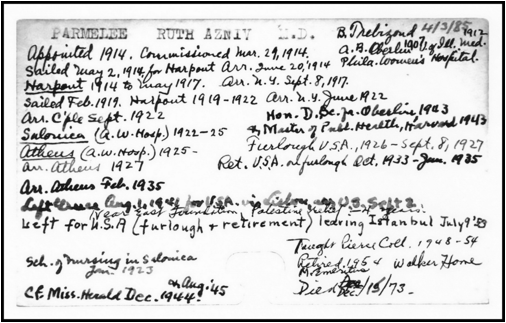 PARMELEE RUTH AZNIV M.D.
B. Trebizond 4/3/85
A.B. Oberlin 1907 U. of Ill. Med. 1912
Phila. Women's Hospital.
Appointed 1914. Commissioned Mar. 29, 1914.
Sailed May 2, 1914, for Harpout Arr. June 20, 1914
Harpout 1914 to May 1917. Arr. N.Y. Sept. 8, 1917.
Sailed Feb. 1919. Harpout 1919-1922 Arr. N.Y. June 1922
Arr. C'ple Sept. 1922
Hon. D.Sc. fr. Oberlin, 1943
Salonica (A.W. Hosp.) 1922-25
& Master of Publ. Health, Harvard 1943
Athens (A.W. Hosp.) 1925-
Furlough U.S.A. 1926 - Sept. 8, 1927
Arr. Athens 1927
Ret. U.S.A. on furlough Oct. 1933 - Jan. 1935
Arr. Athens Feb. 1935
Left Greece Aug. 1, 1941 for U.S.A. via Lisbon, arr. U.S. Sept 2
(Near East Foundation, Palestine years.
Left for U.S.A (furlough & retirement) leaving Istanbul July 9
Taught Pierce Coll. 1948-54
Sch. of Nursing in Salonica
Jan. 1923
Retired 1954 Walker Home
M. Emeritus
Cf. Miss. Herald Dec. 1944. & Aug. '45
Died Dec. /15/73-